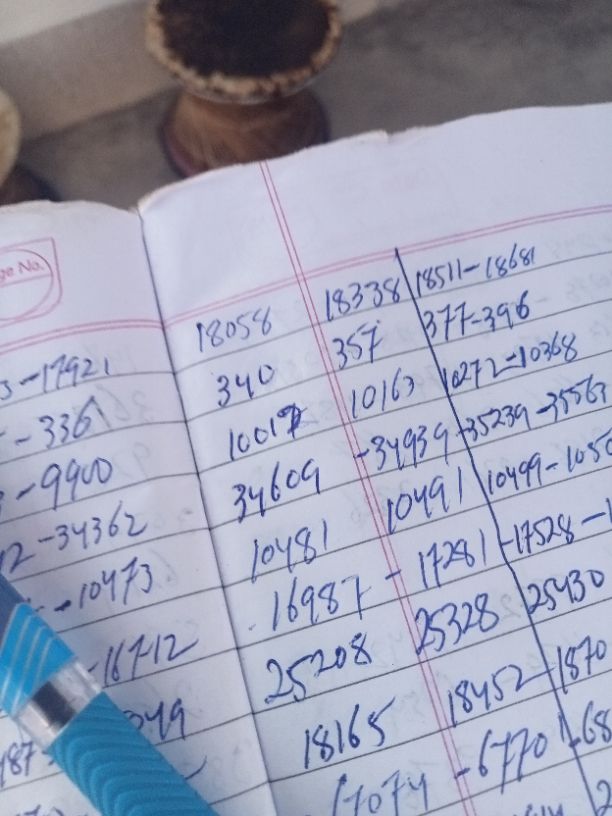 ge No.
-17921 18058 18338 18511-18681
-336 340 357 377-396
-9900 10163 10272-10368
-34362 34609 -34939 -35239 -35563
-10473 10481 10491 10499-1050
-16712 16987 - 17281 -17528 -
049 25208 25328 25430
18165 18452 1870
-6770 -68